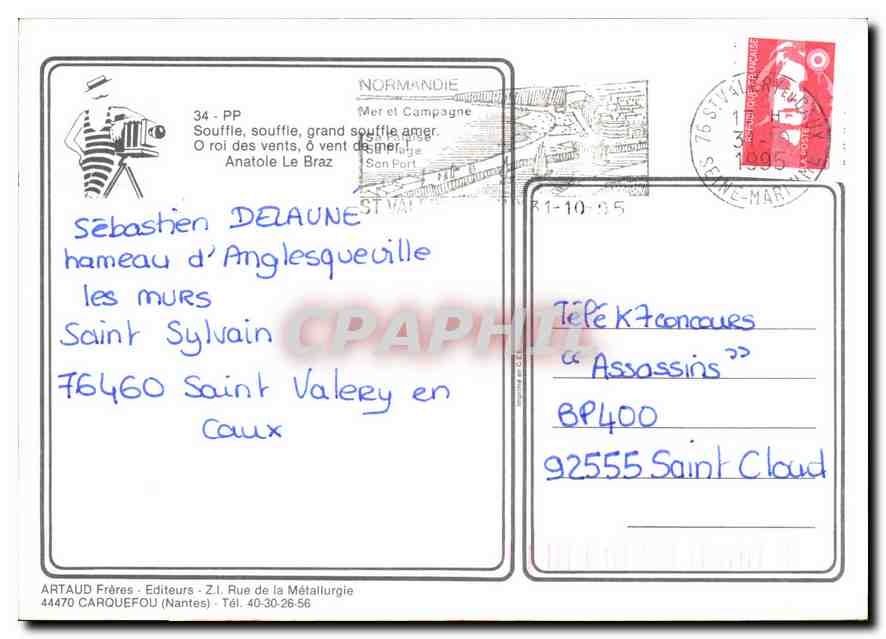 34 - PP
Souffle, souffle, grand souffle amer.
O roi des vents, ô vent de mer!
Anatole Le Braz
NORMANDIE
Mer et Campagne
Sa Falaise
Sa Plage
Son Port
ST VAL
31-10-95
76 ST VALERY-EN-CAUX
1995
SEINE-MARITIME
REPUBLIQUE FRANÇAISE
LA POSTE
Sébastien DELAUNE
hameau d'Anglesqueville
les murs
Saint Sylvain
76460 Saint Valery en
Caux
CPAPHIL
Imprimé en C.E.E.
Télé K7 concours
"Assassins"
BP400
92555 Saint Cloud
ARTAUD Frères - Editeurs - Z.I. Rue de la Métallurgie
44470 CARQUEFOU (Nantes) - Tél. 40-30-26-56